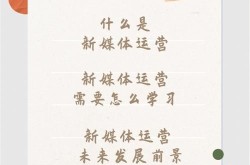 什么是
新媒体运营
新媒体运营
需要怎么学习
新媒体运营
未来发展前景